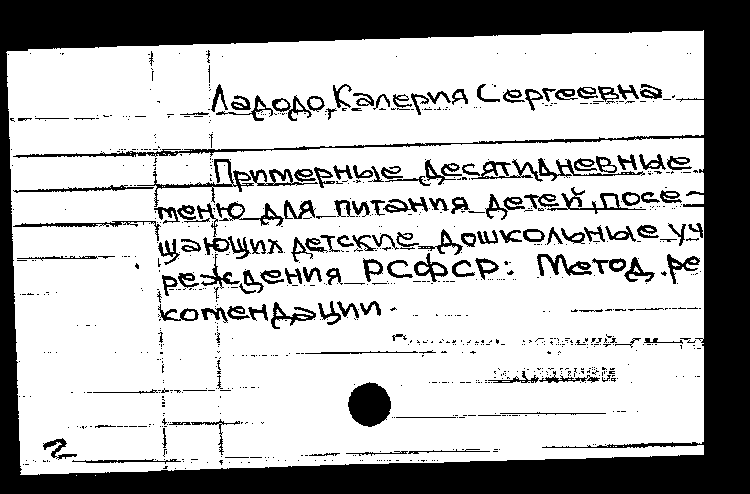 Ладодо, Калерия Сергеевна.
Примерные десятидневные
меню для питания детей, посе-
щающих детские дошкольные уч
реждения РСФСР: Метод. ре
комендации.
2